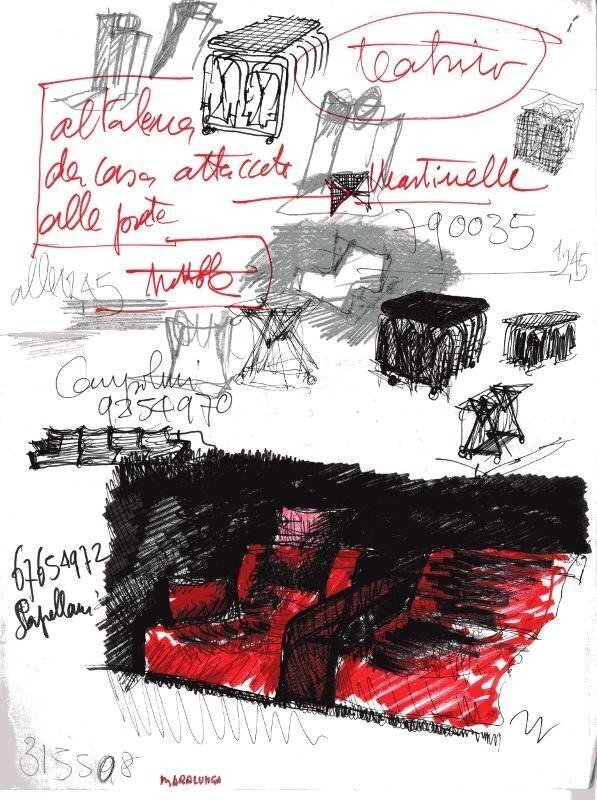 teatrino
altalena
da casa attaccata
alle porte
Martinelle
790035
1945
alle 1245
Campolmi
9254970
67654972
Capellani
315508
MARALUNGA